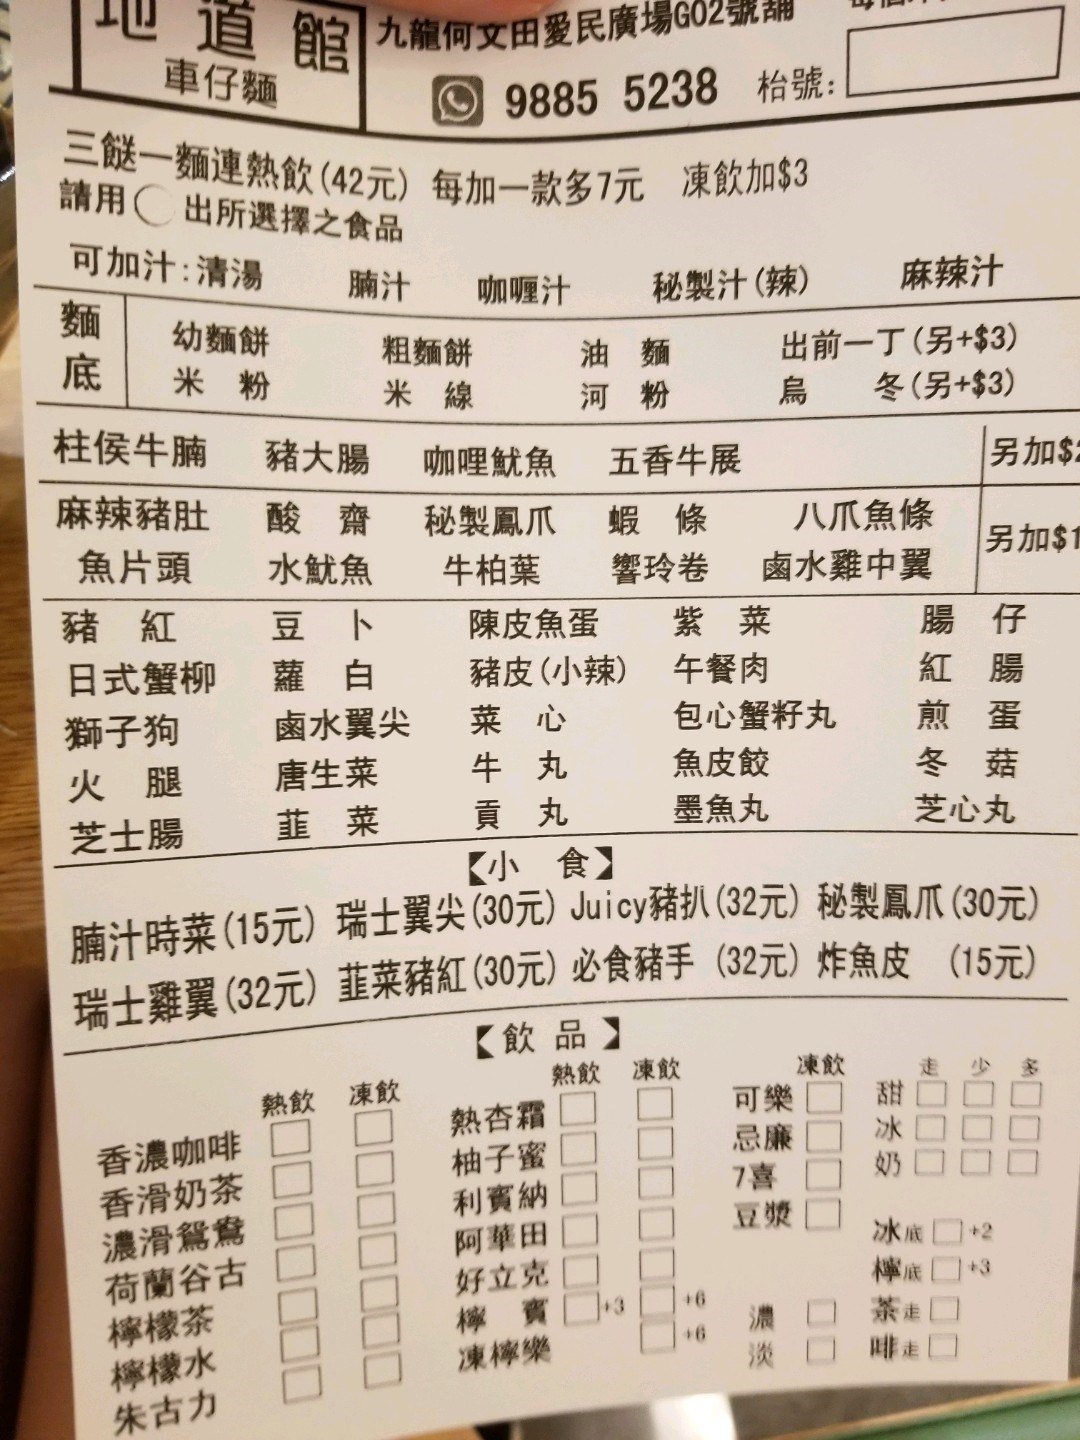 地道館
車仔麵
九龍何文田愛民廣場G02號舖
9885 5238
枱號:
三餸一麵連熱飲(42元) 每加一款多7元 凍飲加$3
請用 出所選擇之食品
可加汁:清湯 腩汁 咖喱汁 秘製汁(辣) 麻辣汁
麵底
幼麵餅 粗麵餅 油麵 出前一丁(另+$3)
米粉 米線 河粉 烏冬(另+$3)
柱侯牛腩 豬大腸 咖哩魷魚 五香牛展 另加$2
麻辣豬肚 酸齋 秘製鳳爪 蝦條 八爪魚條 另加$1
魚片頭 水魷魚 牛柏葉 響玲卷 鹵水雞中翼
豬紅 豆卜 陳皮魚蛋 紫菜 腸仔
日式蟹柳 蘿白 豬皮(小辣) 午餐肉 紅腸
獅子狗 鹵水翼尖 菜心 包心蟹籽丸 煎蛋
火腿 唐生菜 牛丸 魚皮餃 冬菇
芝士腸 韮菜 貢丸 墨魚丸 芝心丸
【小食】
腩汁時菜(15元) 瑞士翼尖(30元) Juicy豬扒(32元) 秘製鳳爪(30元)
瑞士雞翼(32元) 韮菜豬紅(30元) 必食豬手 (32元) 炸魚皮 (15元)
【飲品】
熱飲 凍飲
香濃咖啡
香滑奶茶
濃滑鴛鴦
荷蘭谷古
檸檬茶
檸檬水
朱古力
熱飲 凍飲
熱杏霜
柚子蜜
利賓納
阿華田
好立克
檸賓 +3 +6
凍檸樂 +6
凍飲
可樂
忌廉
7喜
豆漿
濃
淡
走 少 多
甜
冰
奶
冰底 +2
檸底 +3
茶走
啡走